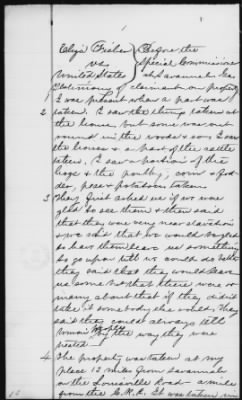 Eliza Fisher } Before the
vs } Special Commissioner
United States } at Savannah Ga
Testimony of claimant on property
I was present when a part was
2 taken. I saw the things taken at
the house, but some was out
round in the woods & so. I saw
the horses & a part of the cattle
taken, I saw a portion of the
hogs & the poultry, corn & fod-
der, peas & potatoes taken.
3 They first asked us if we was
glad to see them & then said
that they was very near starvation
& we said that we would
to have them leave us something
to go upon till we could do better
they said that they would leave
us some but that there were so
many about that if they didn't
take it somebody else would. They
said they could always tell
Union people by the way they were
treated.
4 The property was taken at my
place 12 miles from Savannah
on the Louisville Road a mile
from the C.R.R. It was taken